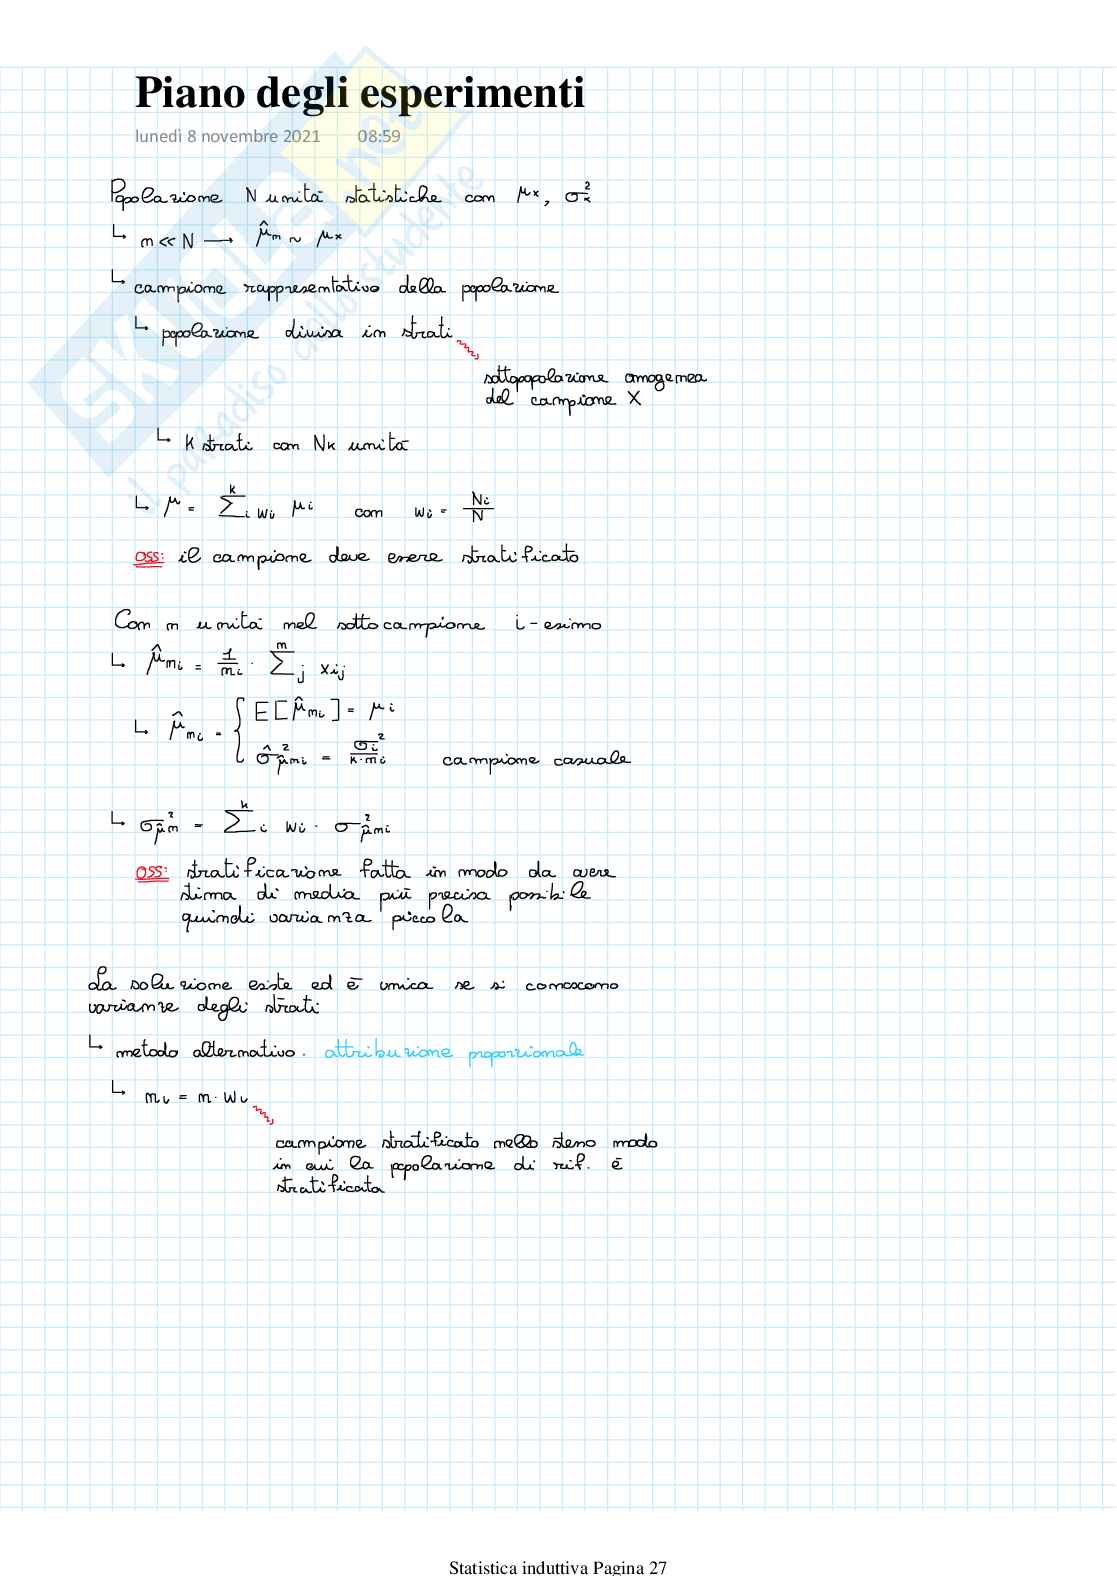 Piano degli esperimenti
lunedì 8 novembre 2021 08:59
Popolazione N unità statistiche con μx, σx²
↳ n << N → μ̂n ~ μx
↳ campione rappresentativo della popolazione
↳ popolazione divisa in strati
sottopopolazione omogenea
del campione X
↳ K strati con Nk unità
↳ μ = Σᵢᵏ wi μi con wi = Ni/N
OSS: il campione deve essere stratificato
Con n unità nel sottocampione i-esimo
↳ μ̂ni = 1/ni · Σⱼⁿ xij
↳ μ̂ni = { E[μ̂ni] = μi
σ̂²μ̂ni = σi²/k·ni campione casuale
↳ σ²μ̂n = Σᵢᵏ wi · σ²μ̂ni
OSS: stratificazione fatta in modo da avere
stima di media più precisa possibile
quindi varianza piccola
La soluzione esiste ed è unica se si conoscono
varianze degli strati
↳ metodo alternativo: attribuzione proporzionale
↳ ni = n · wi
campione stratificato nello stesso modo
in cui la popolazione di rif. è
stratificata
Statistica induttiva Pagina 27
SKUOLA.net
il paradiso dello studente